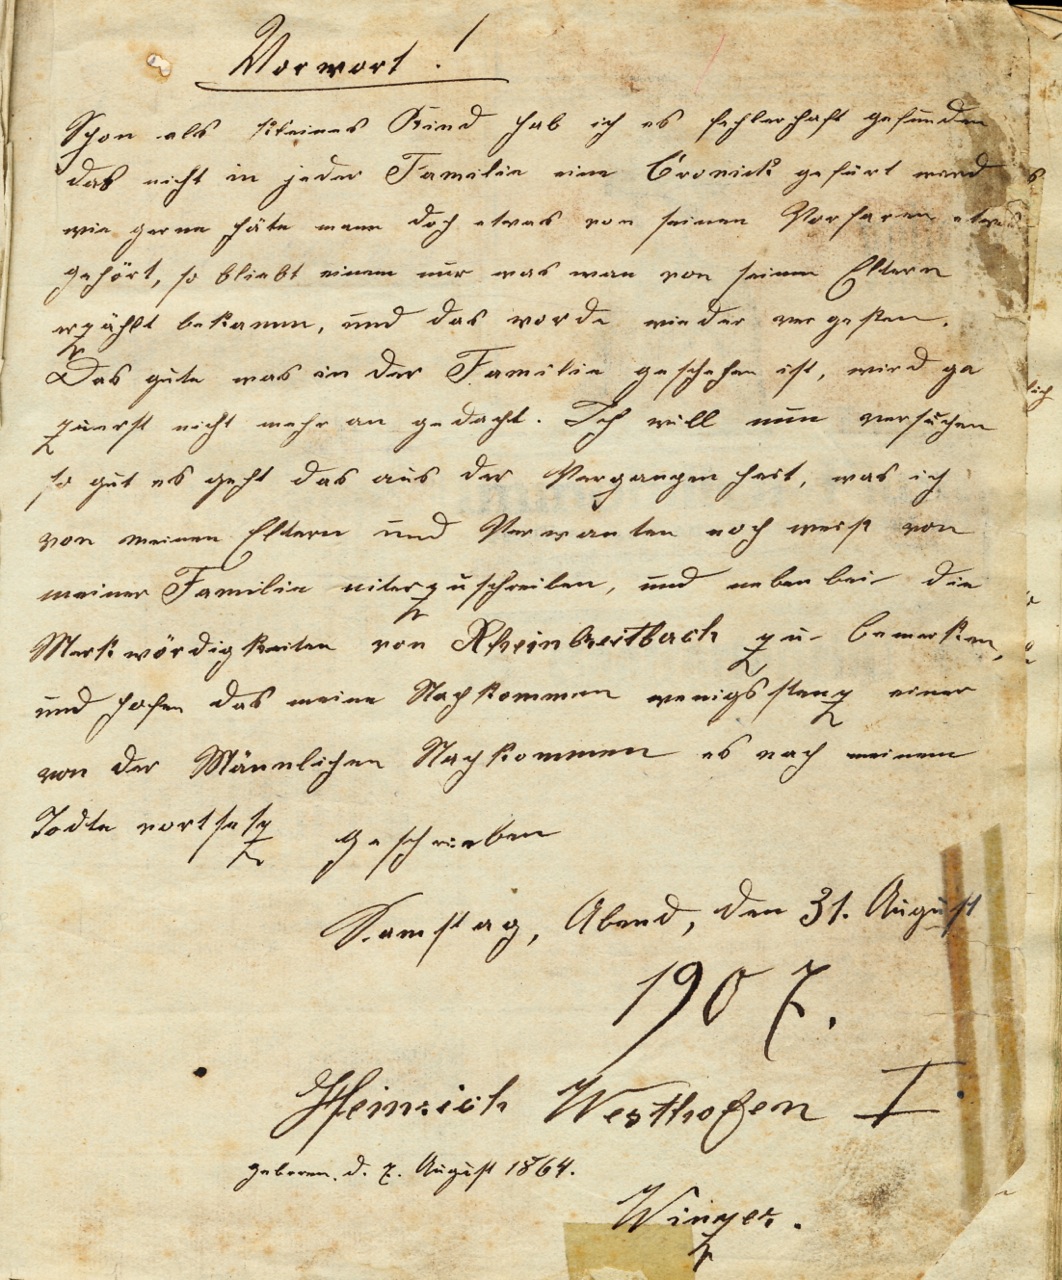 Vorwort!
Schon als kleines Kind hab ich es fehlerhaft gefunden
das nicht in jeder Familie eine Cronick gefürt wird
wie gerne häte mann doch etwas von seinen Vorfaren etwas
gehört, so bliebt einem nur was man von seinen Eltern
erzählt bekamm, und dasworde wieder vergessen.
Das gute was in der Familie geschehen ist, wird ga
zuerst nicht mehr an gedacht. Ich will nun versuchen
so gut es geht das aus der Vergangenheit, was ich
von meinen Eltern und Verwanten noch weiss von
meiner Familie niterzuschreiben, und nebenbei die
Merkwördigkeiten von Rheinbreitbach zu bemerken,
und hofen das meine Nachkommen wenigsstenz einer
von der Männlichen Nachkommen es nach meinem
Todte vortsetz geschrieben
Samstag, Abend, den 31. August
1907.
Heinrich Westhofen I.
geboren. d. 7. August 1864.
Winzer.